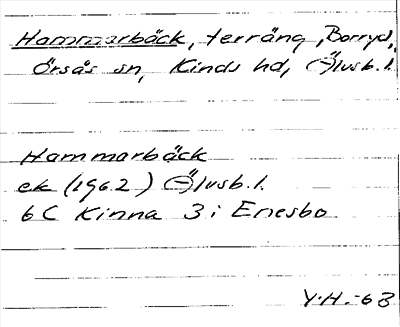 Hammarbäck, terräng, Borryd,
Örsås sn, Kinds hd, Älvsb. l.
Hammarbäck
ek (1962) Älvsb. l.
6C Kinna 3i Enesbo
Y.H. -63